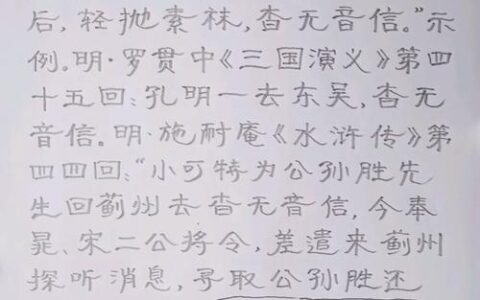 后,轻抛素袜,杳无音信。”示
例。明·罗贯中《三国演义》第四
十五回:孔明一去东吴,杳无
音信。明·施耐庵《水浒传》第
四四回:“小可特为公孙胜先
生回蓟州去杳无音信,今奉
晁、宋二公将令,差遣来蓟州
探听消息,寻取公孙胜还